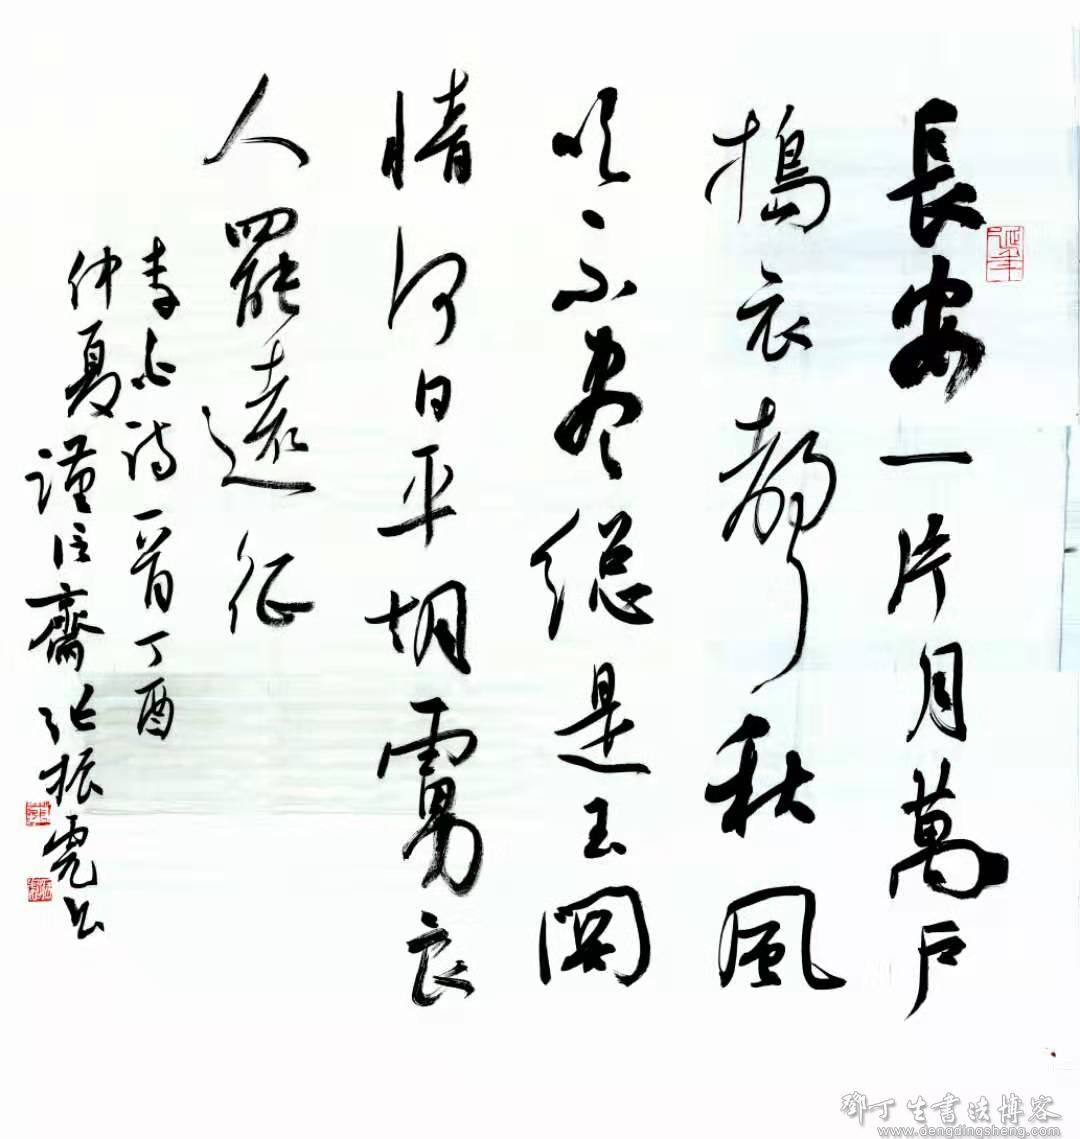 長安一片月萬户
搗衣聲秋風
吹不盡總是玉関
情何日平胡虜良
人罷遠征
李白詩一首丁酉
仲夏謹信齋张振虎书
延年
鄧丁生書法博客
www.dengdingsheng.com